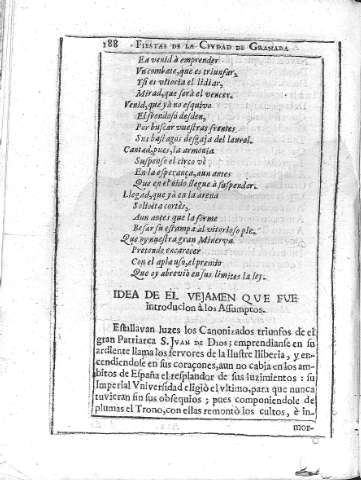 188 FIESTAS DE LA CIVDAD DE GRANADA
Ea venid à emprender
Vn combate, que es triunfar,
Y si es vitoria el lidiar,
Mirad, que serà el vencer.
Venid, que yà no esquivo
El frondoso desden,
Por buscar vuestras frentes
Sus bastagos desgaja del laurel.
Cantad, pues, la armonia
Suspenso el circo vè
En la esperança, aun antes
Que en el oido llegue à suspender.
Llegad, que yà en la arena
Solicita cortès,
Aun antes que la forme
Besar su estampa al vitorioso pie.
Que oy nuestra gran Minerva
Pretende encarecer
Con el aplauso, el premio
Que oy abreviò en sus limites la ley.
IDEA DE EL VEJAMEN QUE FUE
Introducion à los Assumptos.
Estallavan luzes los Canonizados triunfos de el
gran Patriarca S. JVAN DE DIOS; emprendianse en su
ardiente llama los fervores de la Ilustre Iliberia, y en-
cendiendose en sus coraçones, aun no cabia en los am-
bitos de España el resplandor de sus luzimientos : su
Imperial Vniversidad eligiò el vltimo, para que nunca
tuvieran fin sus obsequios ; pues componiendole de
plumas el Trono, con ellas remontò los cultos, è in-
mor-